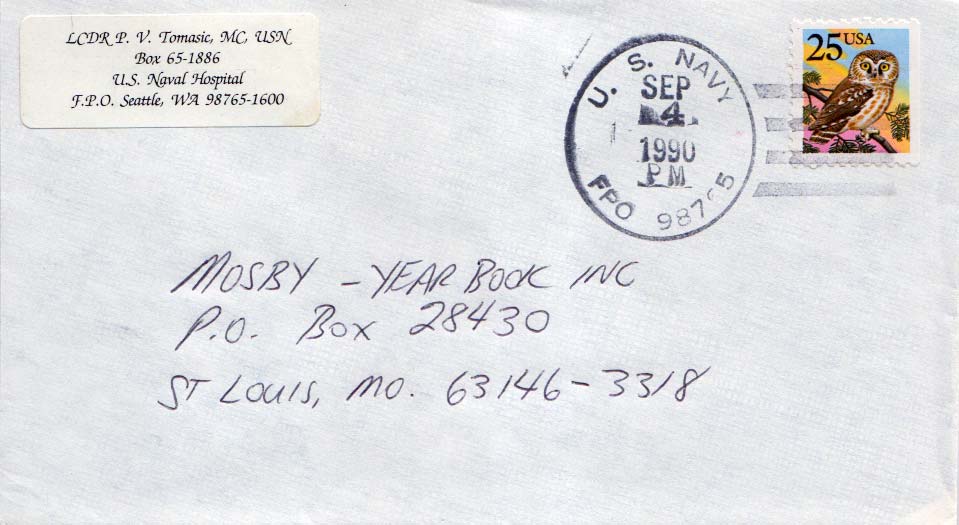 LCDR P. V. Tomasic, MC, USN
Box 65-1886
U.S. Naval Hospital
F.P.O. Seattle, WA 98765-1600
U. S. NAVY
SEP
4
1990
PM
FPO 98765
25 USA
MOSBY - YEAR BOOK INC
P.O. Box 28430
ST LOUIS, MO. 63146-3318